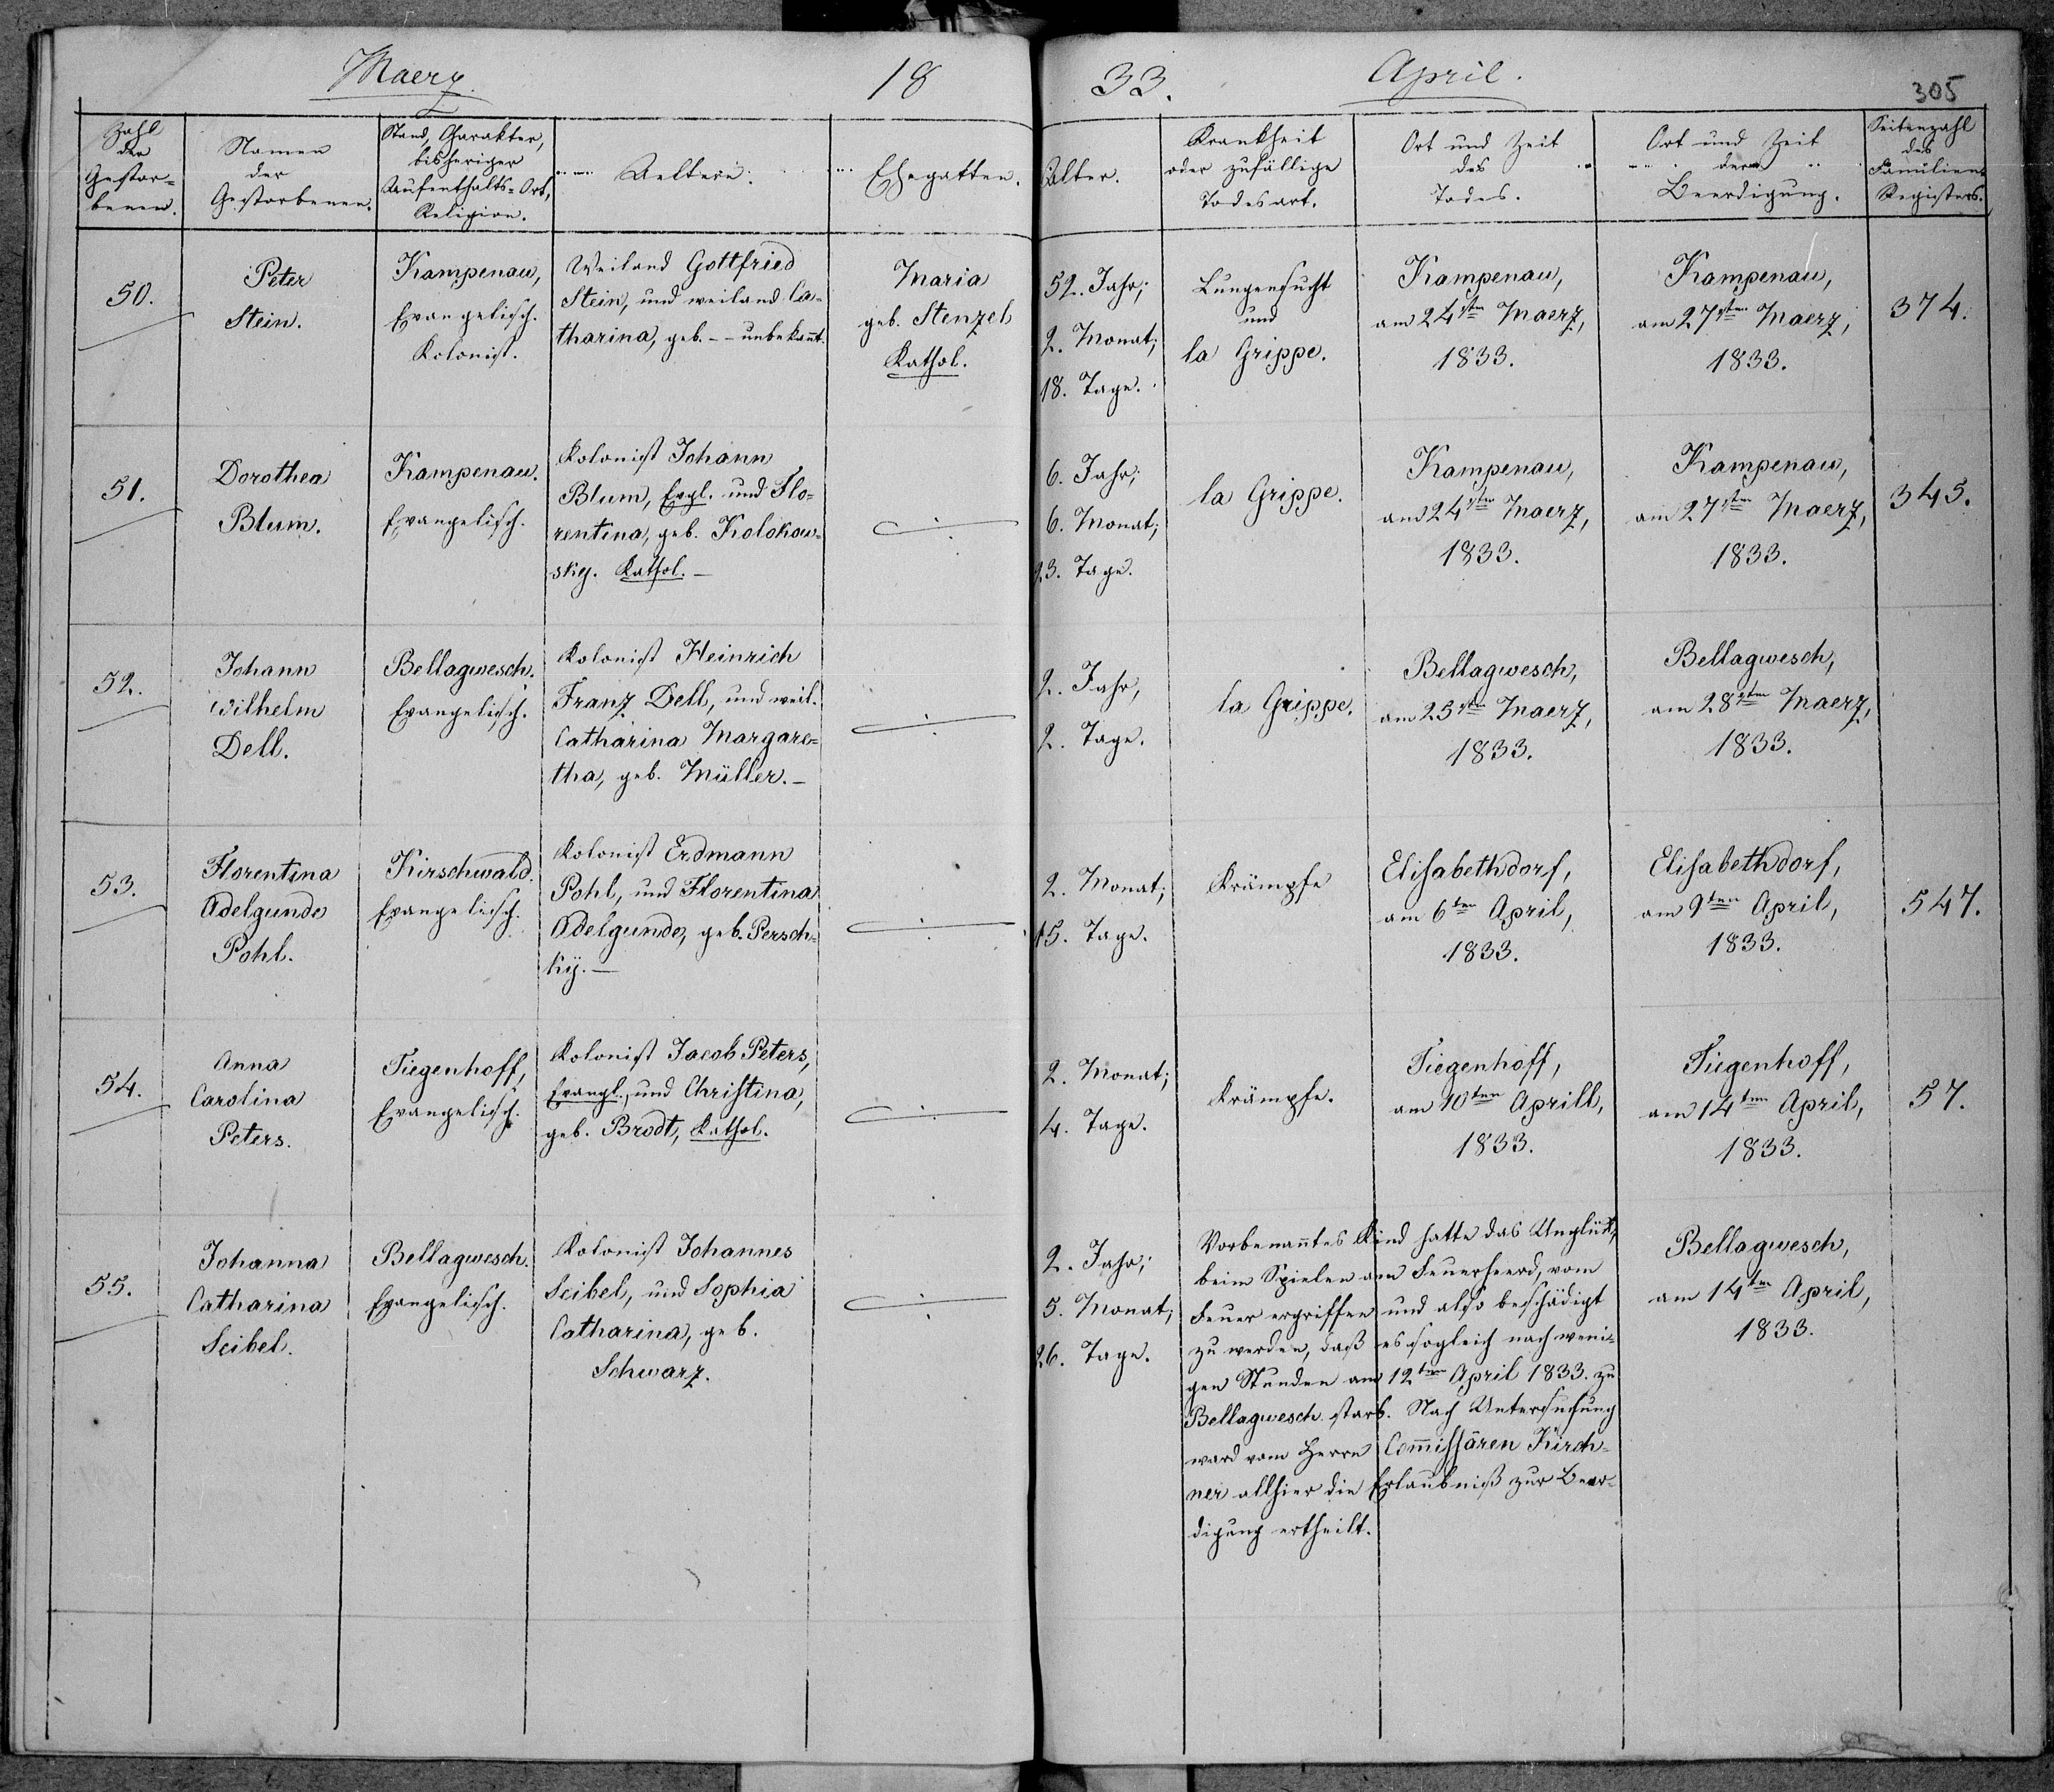 Maerz 18 33. April. 305
Zahl
der
Gestor=
benen.
Namen
der
Gestorbenen.
Stand, Charakter,
bisheriger
Aufenthalts=Ort,
Religion.
Aeltern.
Ehegatten.
Alter.
Krankheit
oder zufällige
Todesart.
Ort und Zeit
des
Todes.
Ort und Zeit
der
Beerdigung.
Seitenzahl
des
Familien
Registers.
50.
Peter
Stein.
Kampenau,
Evangelisch.
Kolonist.
Weiland Gottfried
Stein, und weiland Ca=
tharina, geb. – – unbekañt.
Maria
geb. Stenzel
Kathol.
52. Jahr;
2. Monat;
18. Tage.
Lungensucht
und
la Grippe.
Kampenau,
am 24sten Maerz,
1833.
Kampenau,
am 27sten Maerz,
1833.
374.
51.
Dorothea
Blum.
Kampenau.
Evangelisch.
Kolonist Johann
Blum, Evgl. und Flo=
rentina, geb. Kolokow=
sky. Kathol. –
6. Jahr;
6. Monat;
23. Tage.
la Grippe.
Kampenau,
am 24sten Maerz,
1833.
Kampenau,
am 27sten Maerz,
1833.
345.
52.
Johann
Wilhelm
Dell.
Bellagwesch.
Evangelisch.
Kolonist Heinrich
Franz Dell, und weil.
Catharina Margare=
tha, geb. Müller. –
2. Jahr,
2. Tage.
la Grippe.
Bellagwesch,
am 25sten Maerz,
1833.
Bellagwesch,
am 28sten Maerz,
1833.
53.
Florentina
Adelgunde
Pohl.
Kirschwald.
Evangelisch.
Kolonist Erdmann
Pohl, und Florentina
Adelgunde, geb. Persch=
ky. –
2. Monat;
15. Tage.
Krämpfe
Elisabethdorf,
am 6ten April,
1833.
Elisabethdorf,
am 9ten April,
1833.
547.
54.
Anna
Carolina
Peters.
Tiegenhoff,
Evangelisch.
Kolonist Jacob Peters,
Evangl., und Christina,
geb. Brodt, Kathol.
2. Monat;
4. Tage.
Krämpfe.
Tiegenhoff,
am 10ten Aprill,
1833.
Tiegenhoff,
am 14ten April,
1833.
57.
55.
Johanna
Catharina
Seibel.
Bellagwesch.
Evangelisch.
Kolonist Johannes
Seibel, und Sophia
Catharina, geb.
Schwarz.
2. Jahr;
5. Monat;
26. Tage.
Vorbenañtes Kind hatte das Unglük,
beim Spielen am Feuerheerd, vom
Feuer ergriffen und also beschädigt
zu werden, daß es sogleich nach weni=
gen Stunden am 12ten April 1833. zu
Bellagwesch starb. Nach Untersuchung
ward vom Herrn Com̃issären Kirch=
ner allhier die Erlaubniß zur Beer=
digung ertheilt.
Bellagwesch,
am 14ten April,
1833.